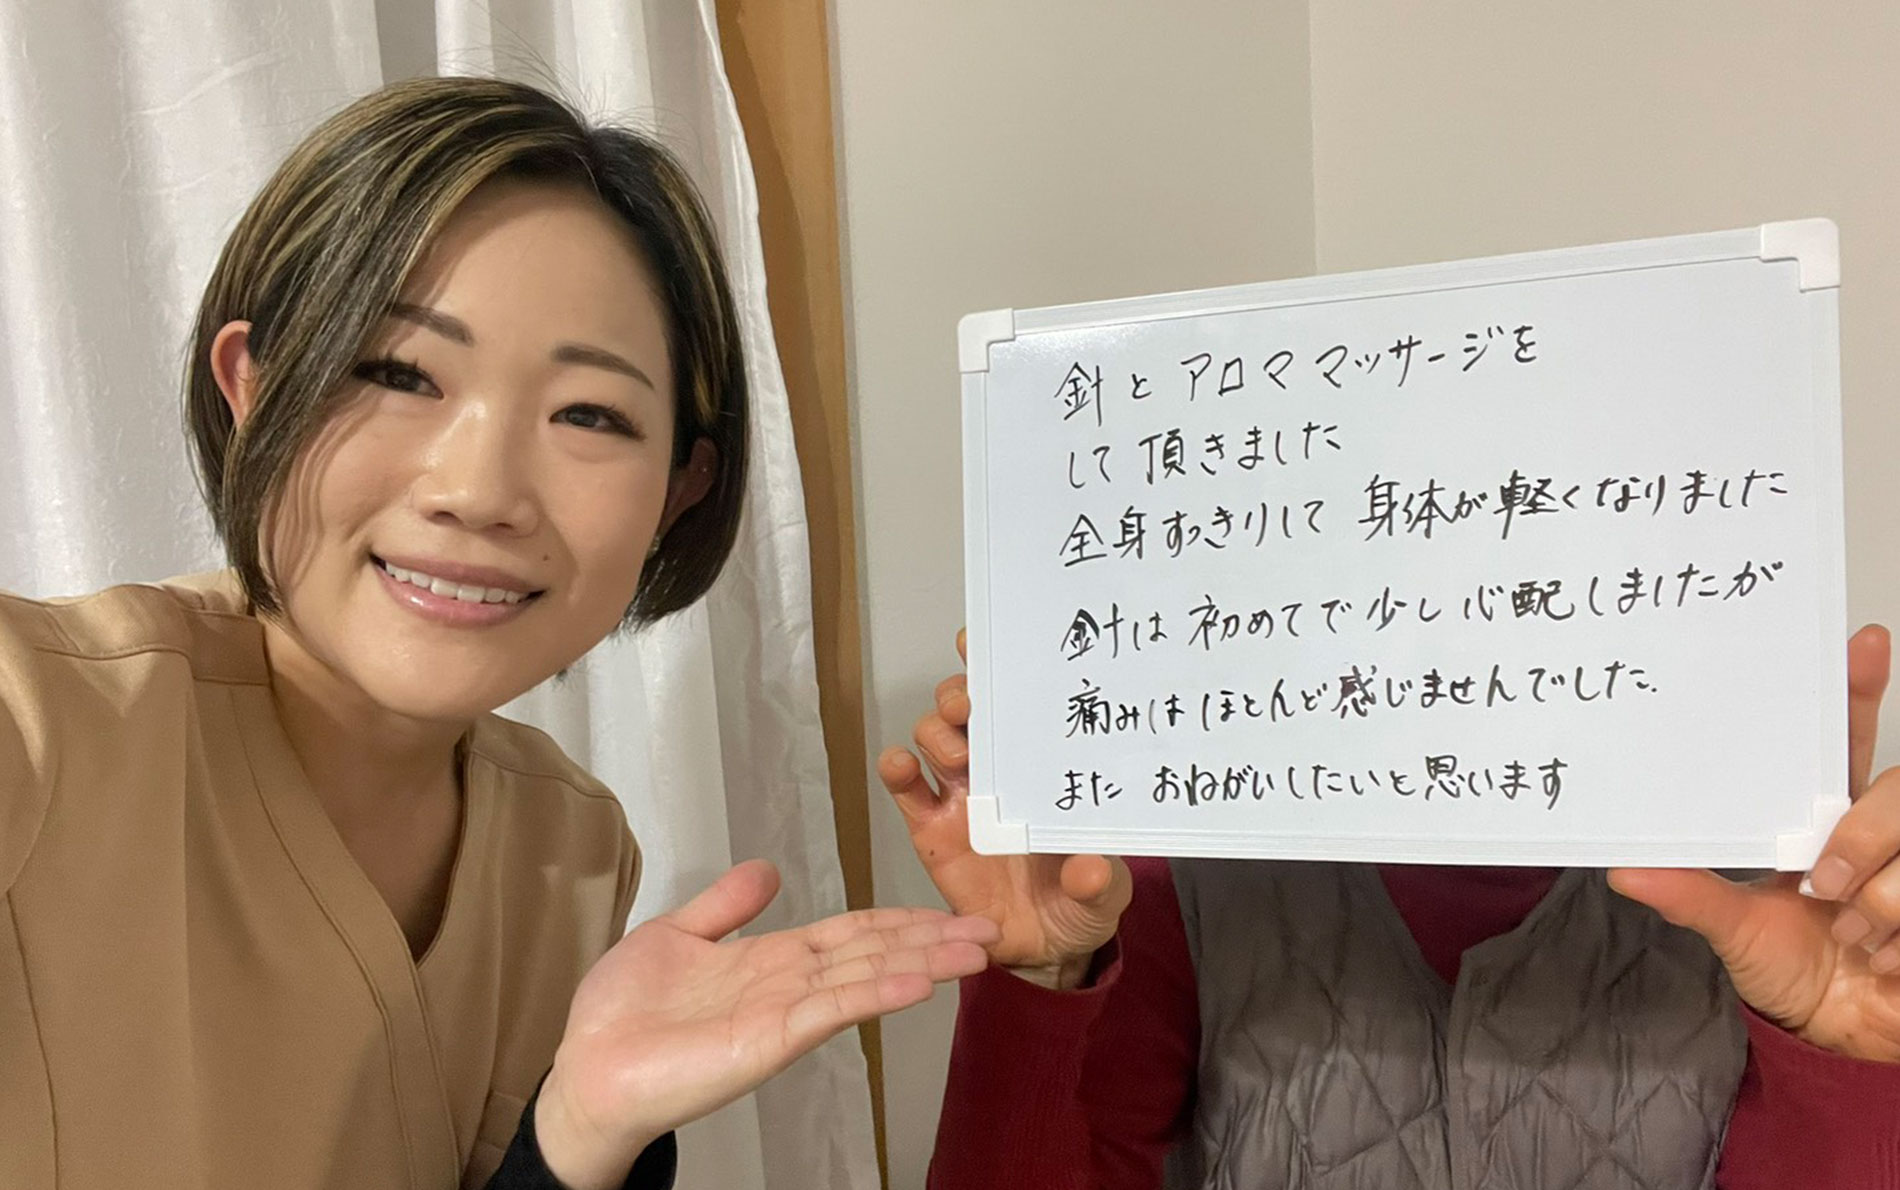 針とアロママッサージを
して頂きました
全身すっきりして 身体が軽くなりました
針は初めてで少し心配しましたが
痛みはほとんど感じませんでした.
また おねがいしたいと思います